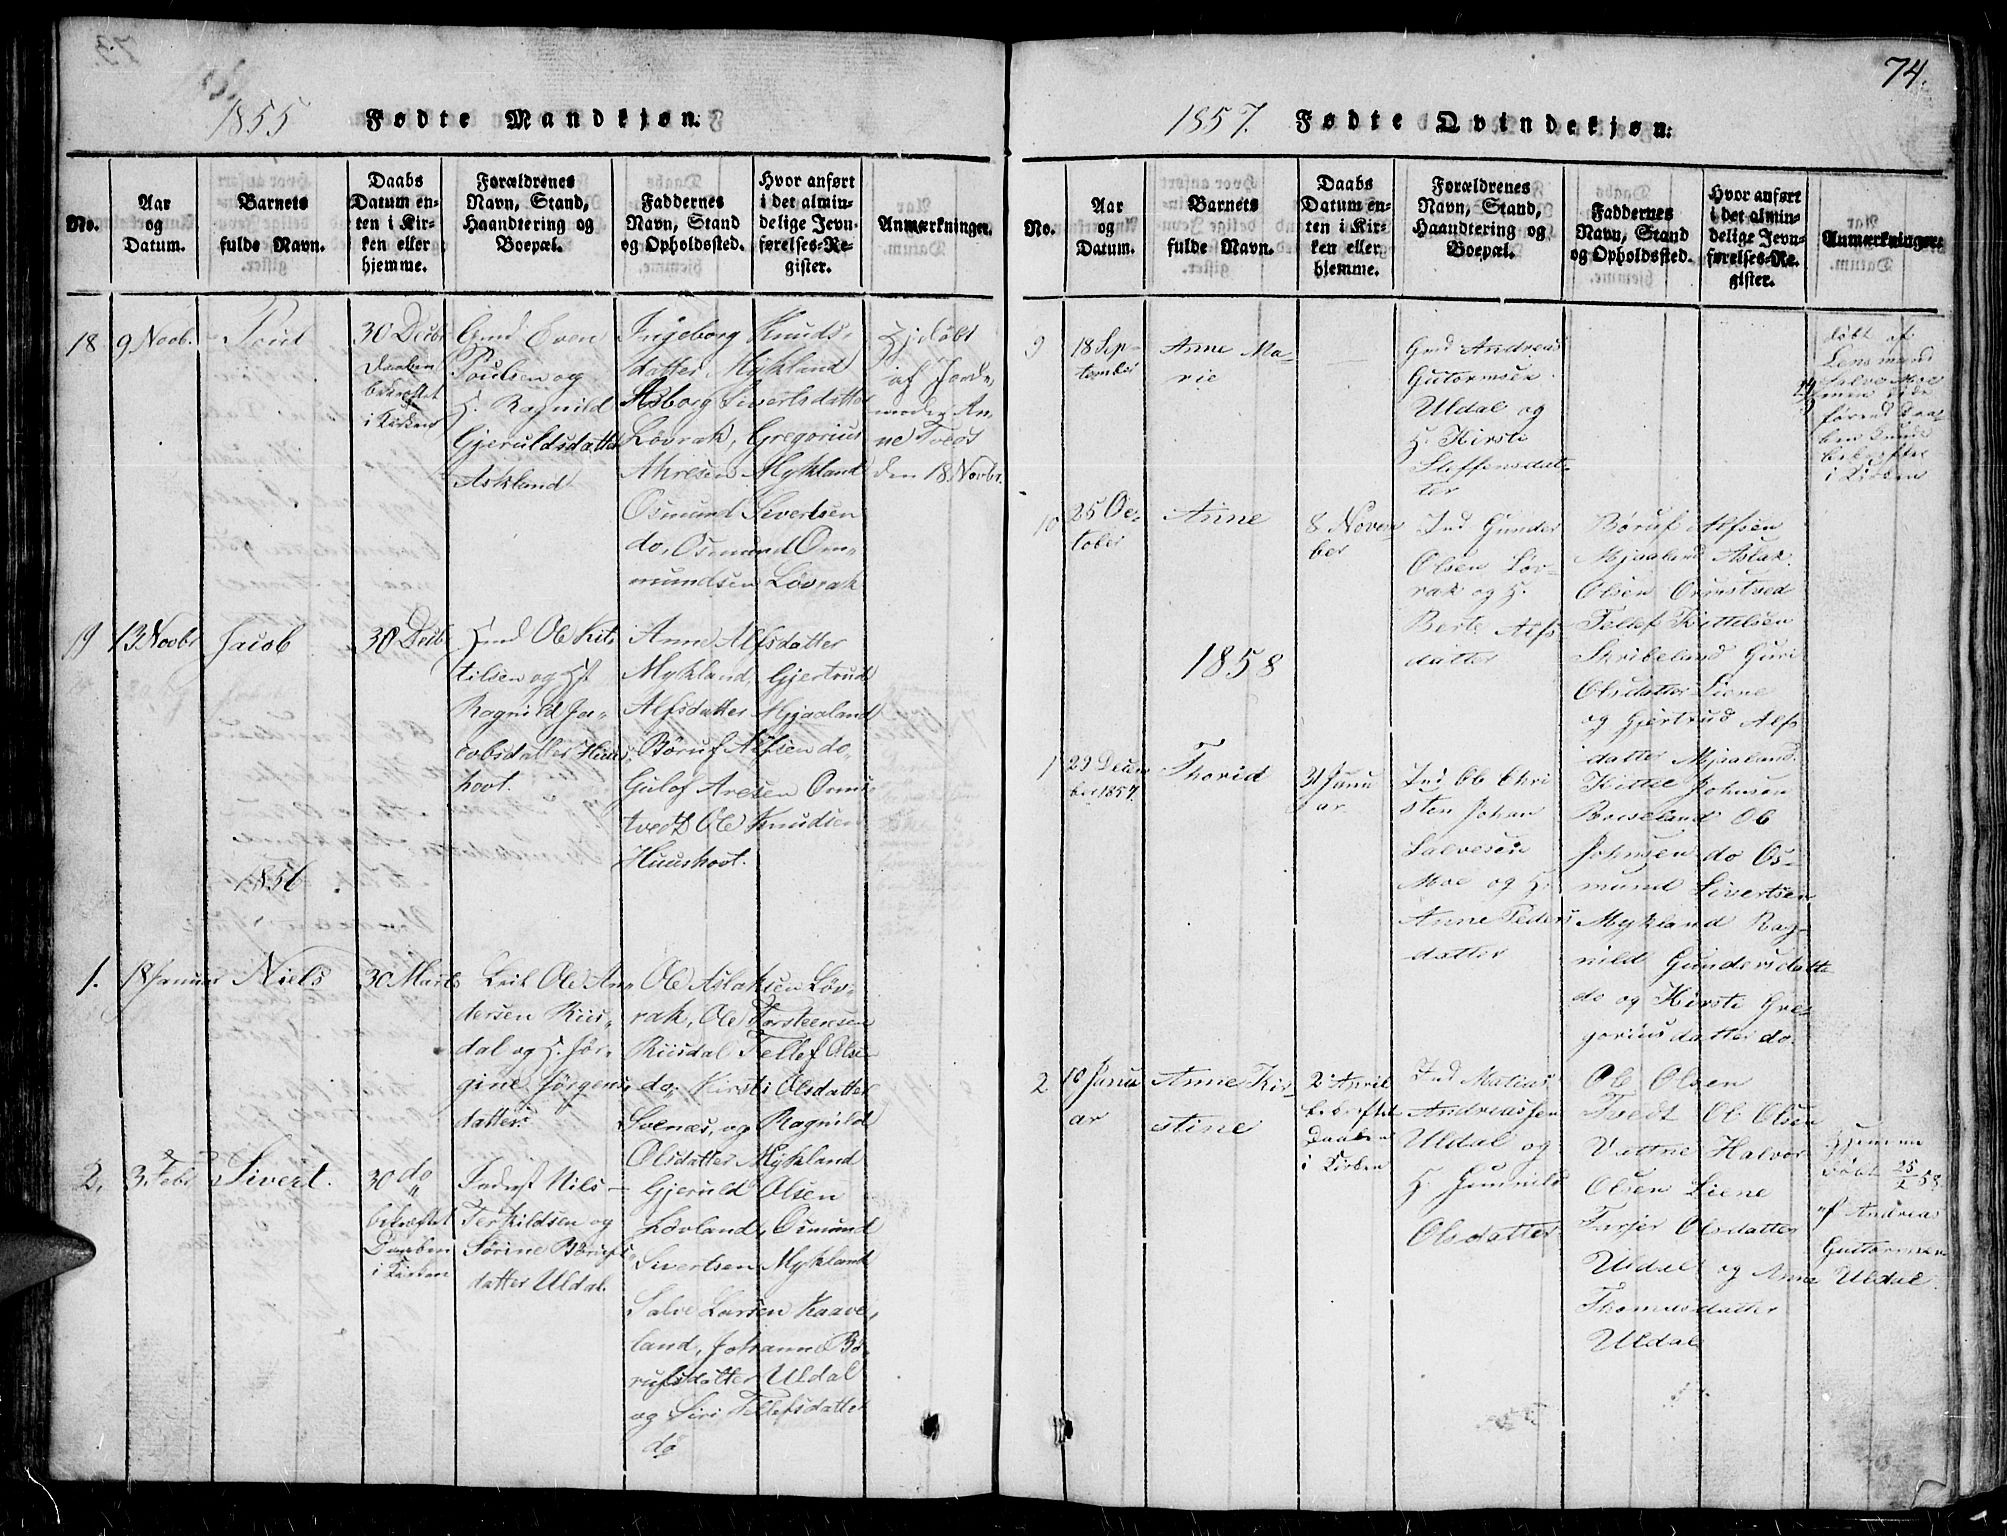 1855 Fødte Mandkjøn.
No.
Aar
og
Datum.
Barnets
fulde Navn.
Daabs
Datum en-
ten i Kir-
ken eller
hjemme.
Forældrenes
Navn, Stand,
Haandtering og
Boepæl.
Faddernes
Navn, Stand
og Opholdssted.
Hvor anført
i det almin-
delige Jevn-
førelses-Re-
gister.
Anmærkninger.
18
9 Novb.
Poul
30 Decbr
Daaben
bekræftet
i Kirken
Gmd Even
Poulsen og
H. Ragnild
Gjeruldsdatter
Askland
Ingeborg Knuds-
datter, Mykland
Asborg Sivertsdatter
Løvrak, Gregorius
Akresen Mykland
Osmund Sivertsen
do, Osmund Om-
mundsen Løvrak
Hjdøbt
af Jorde-
moder An-
ne Tvedt
den 18 Novbr.
19
13 Novbr
Jacob
30 Decb
Hmd Ole Kit-
tilsen og Hst
Ragnild Ja-
cobsdatter Huus-
hovt.
Anne Alfsdatter
Mykland, Gjertrud
Alfsdatter Mjaaland
Børuf Alfsen do
Gulof Aresen Omu-
tvedt Ole Knudsen
Huushovt.
1856
1.
18 Januar
Niels
30 Marts
Leil Ole An-
dersen Riis-
dal og H. Jør-
gine Jørgens-
datter
Ole Aslaksen Løv-
rak, Ole Torsteensen
Riisdal Tellef Olsen
do, Kirsti Olsdatter
Svenæs, og Ragnild
Olsdatter Mykland
2.
3 Febr
Sivert.
30 do
bekræftet
Daaben
i Kirken
Inderst Nils
Terkildsen og
Sørine Børufs-
datter Uldal.
Gjeruld Olsen
Lovland, Osmund
Sivertsen Mykland
Salve Larsen Kaave-
land, Johanne Bø-
rufsdatter Uldal
og Siri Tellefsdatter
do
74.
1857. Fødte Qvindekjøn.
No.
Aar
og
Datum.
Barnets
fulde Navn.
Daabs
Datum en-
ten i Kir-
ken eller
hjemme.
Forældrenes
Navn, Stand,
Haandtering og
Boepæl.
Faddernes
Navn, Stand
og Opholdsted.
Hvor anført
i det almin-
delige Jevn-
førelses-Re-
gister.
Anmærkninger.
9
18 Sep-
tember
Anne Ma-
rie
Gmd Andreas
Gutormsen
Uldal og
H. Kirsti
Steffensdat-
ter
døbt af
Lensmand
Salve Moe
men
førend Daa-
ben kunde
bekræftes
i Kirken
10
25 Oc-
tober
Anne
8 Novem
ber
Ind Gunder
Olsen Løv-
rak og H.
Berte Alfs
datter
Børuf Alfsen
Mjaaland Aslak
Olsen Ormstved
Tellef Kittelsen
Skribeland Guri
Olsdatter Liene
og Gjertrud Alfs
datter Mjaaland.
1858
1
29 Decem
ber 1857.
Thorid
31 Janu
ar
Ind Ole Chri
sten Johan
Salvesen
Moe og H.
Anne Peders
datter
Kittel Johnsen
Boiseland Ole
Johnsen do Os-
mund Sivertsen
Mykland Rag-
nild Gundersdatter
do og Kirsti Gre-
gorius datter do.
2
10 Janu
ar
Anne Kir-
stine
2 April
bekræftet
Daaben
i Kirken
Ind Matias
Andreassen
Uldal og
H. Gunnild
Olsdatter
Ole Olsen
Tvedt Ole Olsen
Vattne Halvor
Olsen Liene
Tarjer Olsdatter
Uldal og Anne
Thomasdatter
Uldal
Hjemme
døbt 25/2 58.
af Andreas
Guttormsen
Uldal.